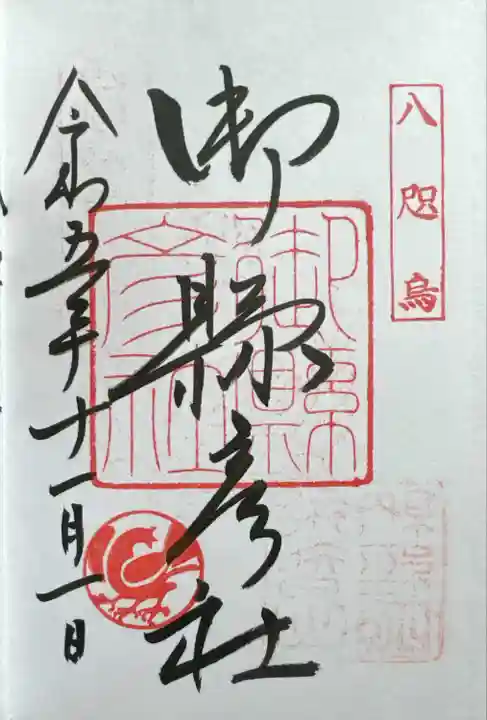 八咫烏
御縣彦社
御縣彦社
令和五年十一月一日